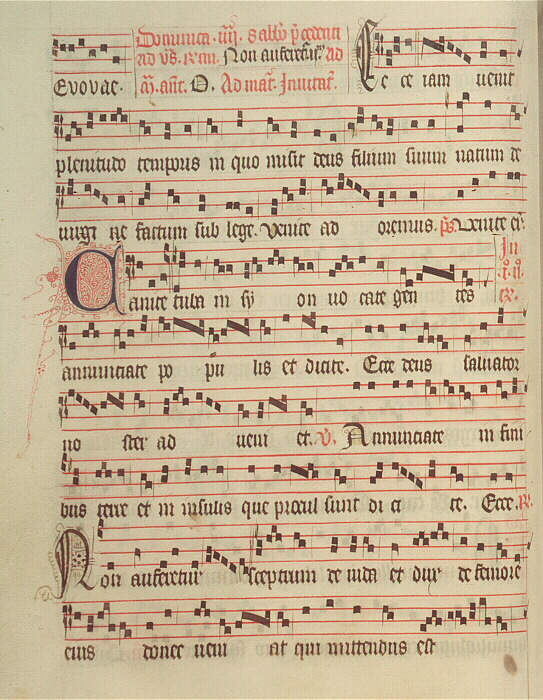 Dominica .iiij. Sabb'o p'cedenti
ad vs. Non auferetur ad
Evovae. añt. O. Ad mat. Invitat.
Ecce iam venit
plenitudo temporis in quo misit deus filium suum natum de
virgi ne factum sub lege. Venite ad oremus. ps. Venite
Canite tuba in sy on vo cate gen tes
annunciate po pu lis et dicite. Ecce deus salvator
no ster ad veni et. V. Annunciate in fini
bus terre et in insulis que procul sunt di ci te. Ecce. R.
Non auferetur sceptrum de iuda et dux de femore
eius donec veni at qui mittendus est